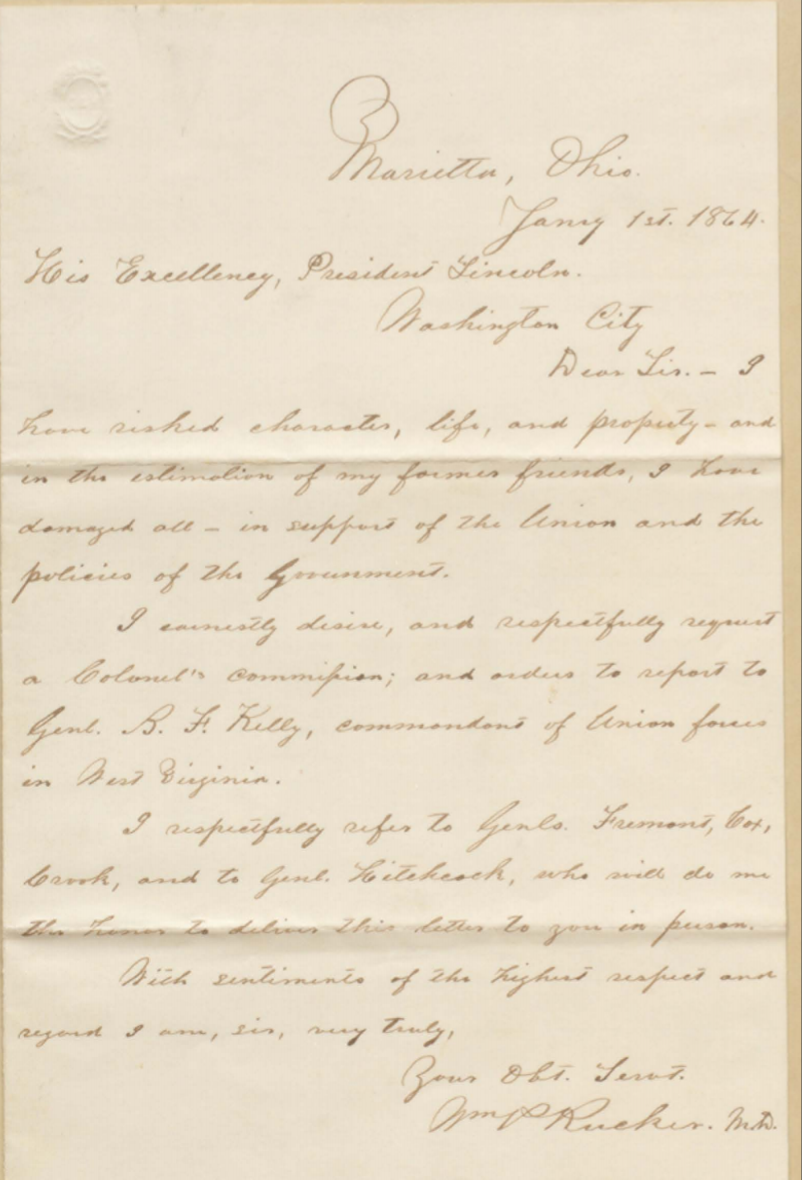 Marietta, Ohio.
Jany 1st. 1864.
His Excellency, President Lincoln.
Washington City
Dear Sir. – I
have risked character, life, and property – and
in the estimation of my former friends, I have
damaged all – in support of the Union and the
policies of the Government.
I earnestly desire, and respectfully request
a Colonel's commission; and orders to report to
Genl. B. F. Kelly, commandant of Union forces
in West Virginia.
I respectfully refer to Genls. Fremont, Cox,
Crook, and to Genl. Hitchcock, who will do me
the honor to deliver this letter to you in person.
With sentiments of the highest respect and
regard I am, sir, very truly,
Your Obt. Servt.
Wm P Rucker. M.D.